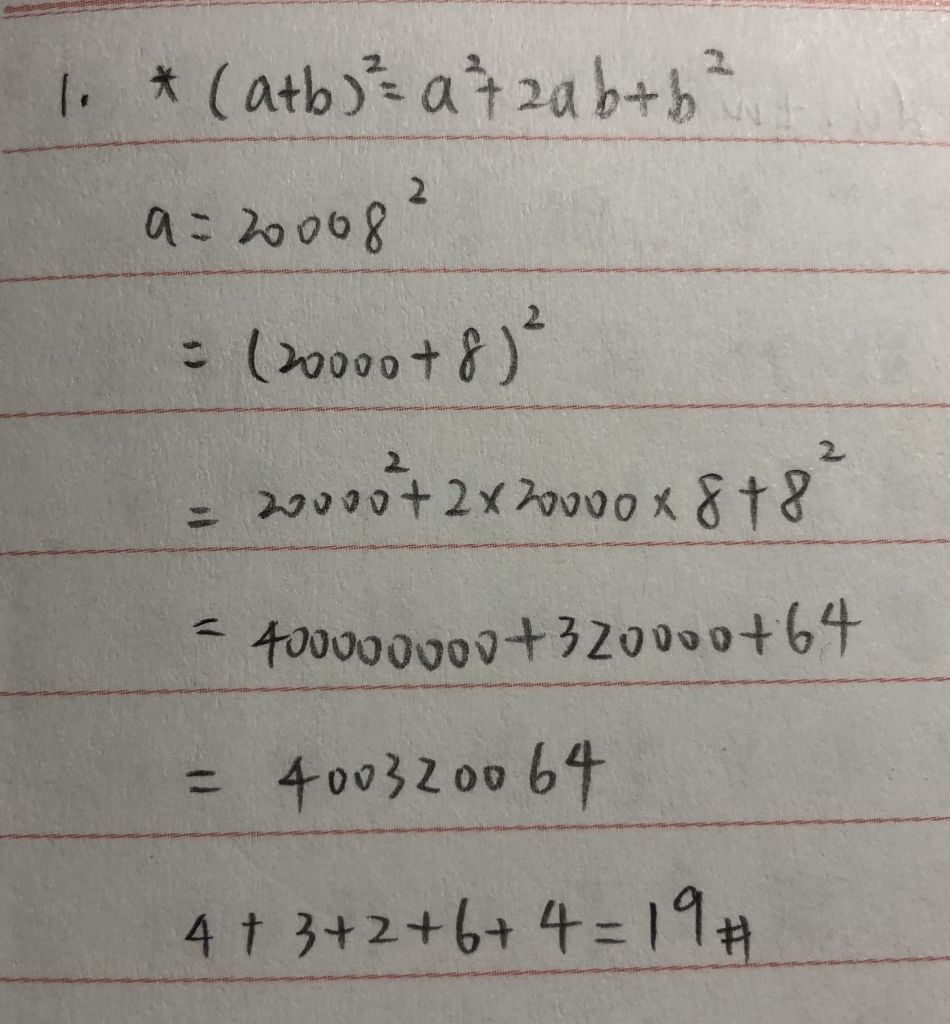 1. * (a+b)²= a²+2ab+b²
a = 20008²
= (20000+8)²
= 20000²+2×20000×8+8²
= 400000000+320000+64
= 400320064
4+3+2+6+4=19#